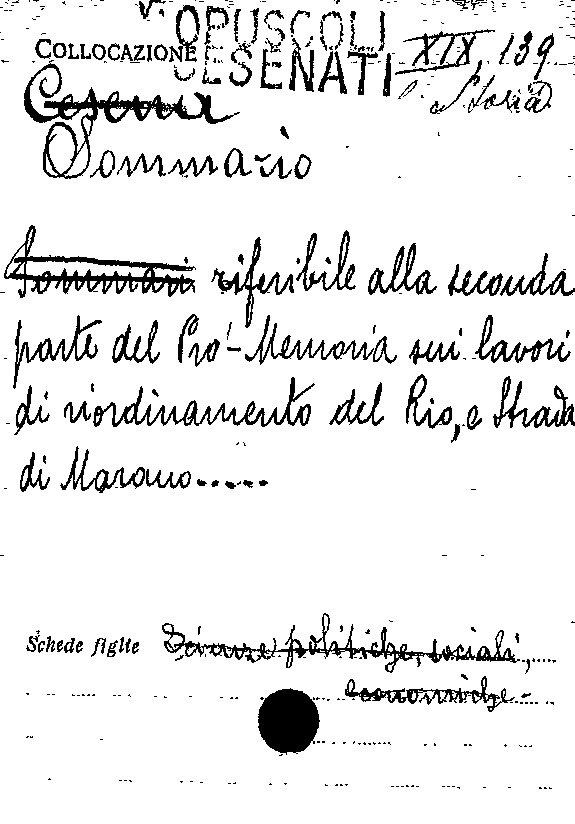 V. OPUSCOLI
COLLOCAZIONE CESENATI XIX, 139
Storia
Cesena
Sommario
Sommari riferibile alla seconda
parte del Pro-Memoria sui lavori
di riordinamento del Rio, e Strada
di Marano.....
Schede figlie Scienze politiche, sociali,
economiche-